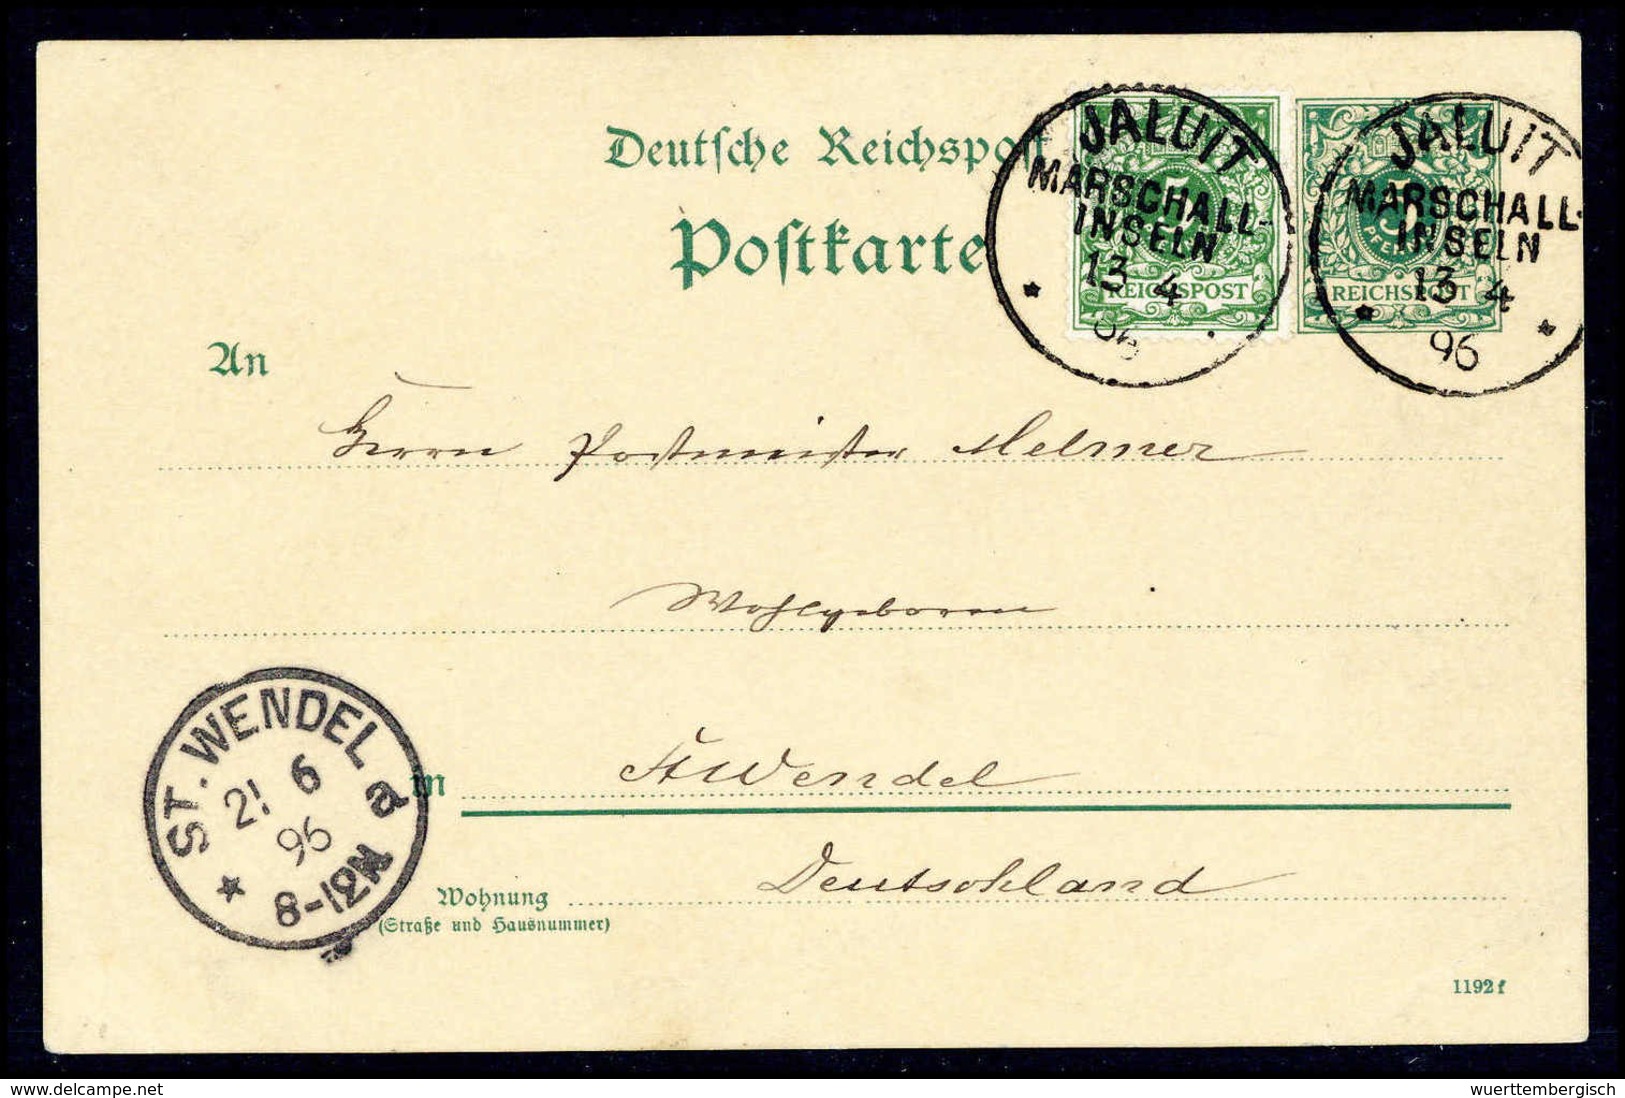 Deutsche Reichspost
Postkarte
5
PFENNIG
REICHSPOST
5
PFENNIG
REICHSPOST
JALUIT
MARSCHALL-
INSELN
13 4
96
JALUIT
MARSCHALL-
INSELN
13 4
96
An
Herrn Postmeister Melsner
Wohlgeboren
in St Wendel
Deutschland
ST. WENDEL a
21 6
96
8-12N
Wohnung
(Straße und Hausnummer)
1192 f
www.delcampe.net
wuerttembergisch